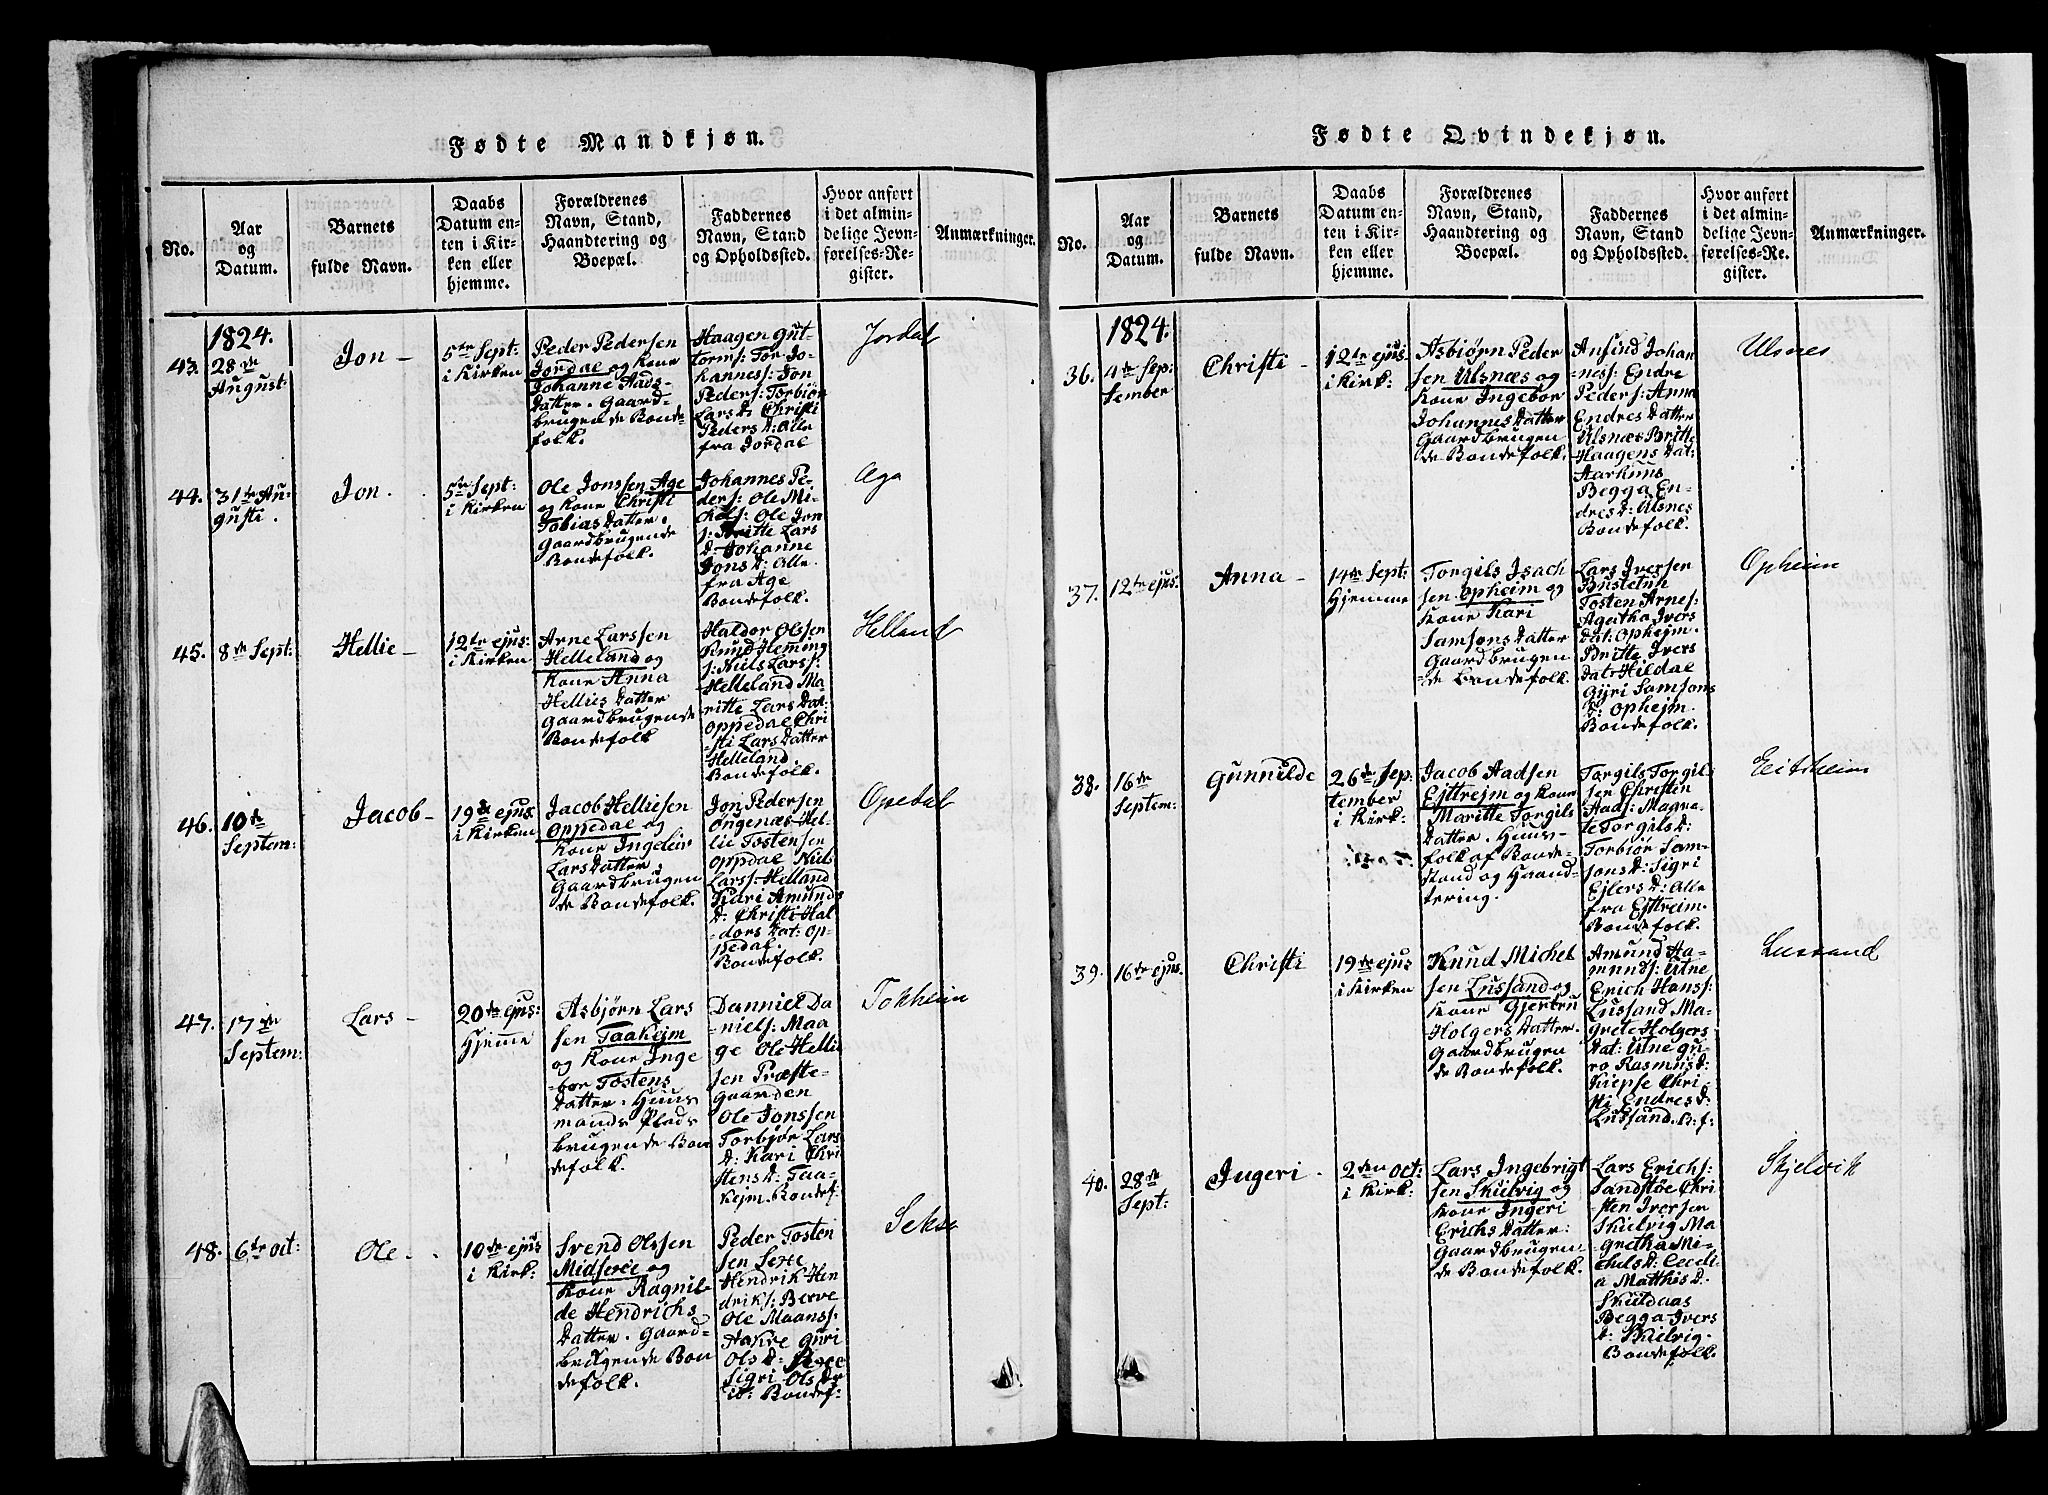 Fødte Mandkjøn.
No.
Aar
og
Datum.
Barnets
fulde Navn.
Daabs
Datum en-
ten i Kir-
ken eller
hjemme.
Forældrenes
Navn, Stand,
Haandtering og
Boepæl.
Faddernes
Navn, Stand
og Opholdssted.
Hvor anført
i det almin-
delige Jevn-
førelses-Re-
gister.
Anmærkninger.
1824.
43.
28de
August:
Jon -
5te Sept:
i Kirken
Peder Pedersen
Jordal og Kone
Johanne Aads-
Datter. Gaard-
brugende Bonde-
folk.
Haagen Gut-
torms: Tor Jo-
hanness: Jon
Peders: Torbiør
Lars D. Christi
Peders D: Alle
fra Jordal
Jordal
44.
31te Au-
gusti.
Jon.
5te Sept:
i Kirken
Ole Jonssen Age
og Kone Christi
Tobias Datter.
Gaardbrugende
Bondefolk.
Johannes Pe-
ders: Ole Mi-
chels: Ole Jon
s: Britte Lars
D: Johanne
Jons D: Alle
fra Age
Bondefolk.
Aga
45.
8de Sept:
Hellie -
12te ejus:
i Kirken
Arne Larssen
Helleland og
Kone Anna
Hellies Datter
Gaardbrugende
Bondefolk
Haldor Olssen
Knud Heming
s: Niels Larss:
Helleland Ma-
ritte Lars Dat:
Oppedal Chri
-sti Lars Datter
Helleland.
Bondefolk.
Helland
46.
10de
Septem:
Jacob -
19de ejus:
i Kirken
Jacob Helliesen
Oppedal og
Kone Ingeleiv
Lars Datter.
Gaardbrugen
de Bondefolk.
Jon Pedersen
Øngenæs Hel-
lie Tostensen
Oppdal Niels
Larss: Helland
Kari Amunds
D: Christi Hal
-dors Dat: Op-
pedal.
Bondefolk.
Opedal
47.
17de
Septem:
Lars -
20de ejus:
Hjemme
Asbjørn Lars
sen Taakejm
og Kone Inge
-bor Tostens
Datter. Huus
mands Plads
brugende Bon
defolk.
Danniel Da-
niels: Maa
ge Ole Hellie
sen Præste-
gaarden
Ole Jonssen
Torbjør Lars
D: Kari Chri
stens D: Taa-
kejm. Bondef:
Tokheim
48.
6te Oct:
Ole -
10de ejus
i Kirk:
Svend Olssen
Midserøe og
Kone Ragnil-
de Hendrichs
Datter. Gaard-
brugende Bon
defolk.
Peder Tosten
sen Sexe
Hendrik Hen
driks: Berve
Ole Maanss:
Hakje Guri
Ols D:
Sigri Ols Dr
ib: Bondef:
Sekse
Fødte Qvindekjøn.
No.
Aar
og
Datum.
Barnets
fulde Navn.
Daabs
Datum en-
ten i Kir-
ken eller
hjemme.
Forældrenes
Navn, Stand,
Haandtering og
Boepæl.
Faddernes
Navn, Stand
og Opholdssted.
Hvor anført
i det almin-
delige Jevn-
førelses-Re-
gister.
Anmærkninger.
1824.
36.
4de Sep:
tember
Christi -
12te ejus:
i Kirk:
Asbiørn Peder
sen Ulsnæs og
Kone Ingebor
Johannes Datter
Gaardbrugen
de Bondefolk.
Ansind Johan
-ness: Endre
Peders: Anna
Endres Datter
Ulsnæs Britte
Haagens Dat:
Aarhuus
Begga En-
dres D: Ulsnes
Bondefolk.
Ulsnes
37.
12te ejus:
Anna -
14de Sept:
Hjemme
Torgils Isach
sen Opheim og
Kone Kari
Samsons Datter
Gaardbrugen
-de Bondefolk.
Lars Iversen
Bustetun
Tosten Arnes:
Agatha Ivers
Dat: Opheim.
Britte Ivers
Datr Hildal
Gyri Samsons
D: Opheim.
Bondefolk.
Opheim
38.
16de
Septem:
Gunnilde
26de Sep:
tember
i Kirk:
Jacob Aadsen
Ejttrejm og Kone
Maritte Torgils
Datter. Huus-
folk af Bonde-
stand og Haand-
tering.
Torgils Torgils
sen Christen
Aads: Magna-
te Torgils D:
Torbiør Sam-
sons D: Sigri
Ejlers D: Alle
fra Ejttreim.
Bondefolk.
Eitrheim
39.
16de ejus.
Christi
19de ejus
i Kirken
Knud Michel
sen Lussand og
Kone Gjertru
Holgers Datter.
Gaardbrugen
de Bondefolk.
Amund Ha-
munds: Utne
Erich Hans:
Lussand Ma-
grete Holgers
Dat: Utne Gu-
ro Rasmus D:
Kiepse Chri-
sti Endres D:
Lussand. B: f:
Lussand
40.
28de
Sept:
Ingeri -
2den Oct:
i Kirk:
Lars Ingebrigt
sen Skielvig og
Kone Ingeri
Erichs Datter:
Gaardbrugen-
de Bondefolk.
Lars Erichs:
Sandstøe Chri
-sten Iversen
Skielvig Ma-
gretha Mi-
chels D: Cecili
a Matthis D.
Skutdaas
Begga Ivers
D: Skielvig.
Bondefolk.
Skjelvik